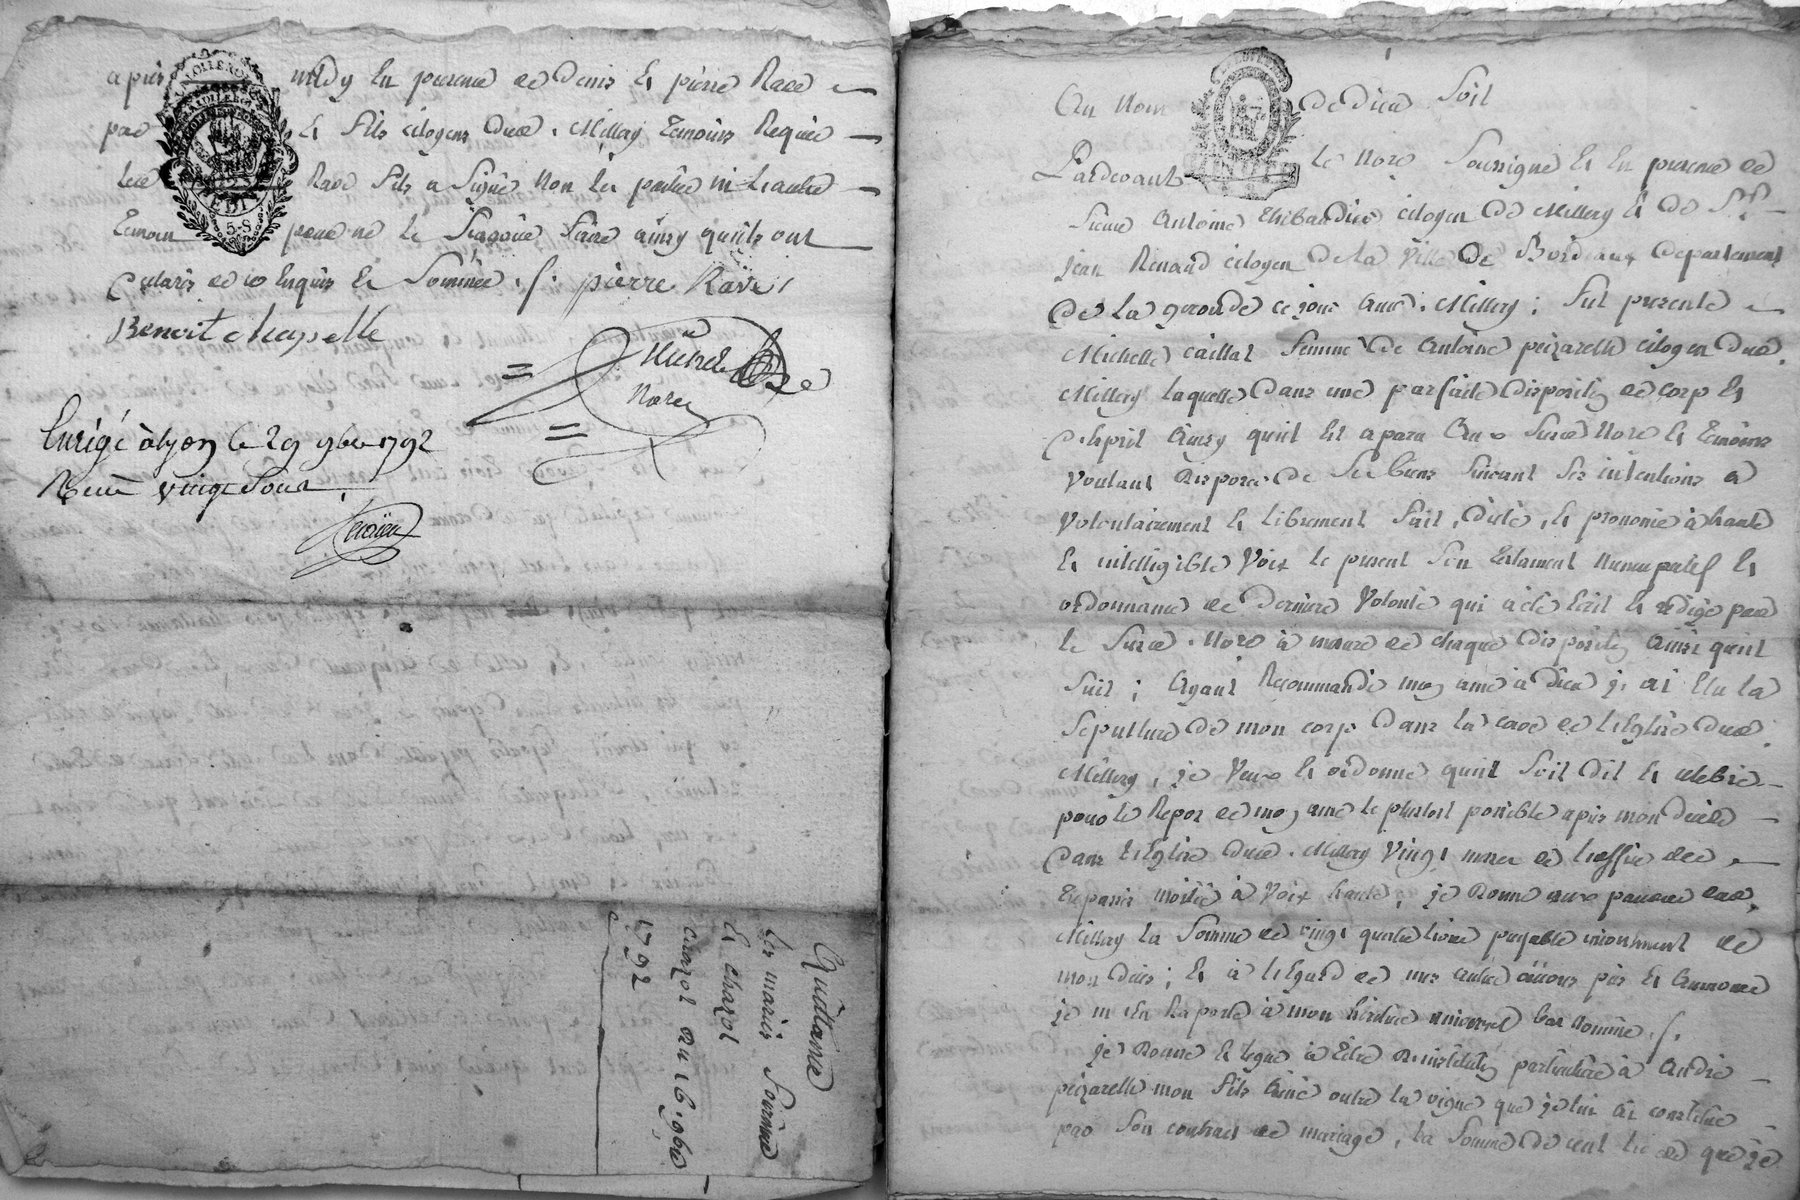 apres midy en presence de Denis et pierre Rave
pere et fils citoyens dud. Millery temoins Requis
led Rave fils a signé non les parties ni l'autre
temoin pour ne le scavoir faire ainsy qu'ils ont
declaré de ce enquis et sommée ./. pierre Rave
Benoit chapelle
Nore
Enrégé à lyon le 29 9bre 1792
Reçu vingt sous
Quittance
les mariés
et Chazot
du 16 9bre
1792
Au Nom de dieu soit
Pardevant le Nore soussigné et en presence de
sieur Antoine Thibaudier citoyen de Millery et de Sr
jean Renaud citoyen de la ville de Bordeaux departement
de la gironde ce jour aud. Millery ; fut presente
Michelle caillat femme de Antoine peizarelle citoyen dud.
Millery laquelle dans une parfaite disposition de corp et
d'esprit ainsy quil est aparu aux susd Nore et temoins
voulant disposer de ses biens suivant ses intentions a
volontairement et librement fait, dicté, et prononcé à haute
et intelligible voix le present son testament nuncupatif et
ordonnance de derniere volonté qui a été écrit et rédigé par
le susd. Nore à mesure de chaque disposition ainsi quil
suit ; Ayant Recommandé mon ame à dieu j'ai élu la
sepulture de mon corp dans la cave de l'Eglise dud.
Millery, je veux et ordonne quil soit dit et celebré
pour le Repos de mon ame le plustost possible apres mon décéd
dans l'Eglise dud. Millery vingt messes de l'office des
trepassés moitié à voix haute, je donne aux pauvres dud.
Millery la somme de vingt quatre livres payable incontinent
mon deces ; et à l'égard de mes autres œuvres pies et aumones
je m'en Raporte à mon héritier universel bas nommé ./.
je donne et legue à titre d'institution particulière à André
peizarelle mon fils ainé outre la vigne que je lui ai constitué
par son contract de mariage, la somme de cent livres que je